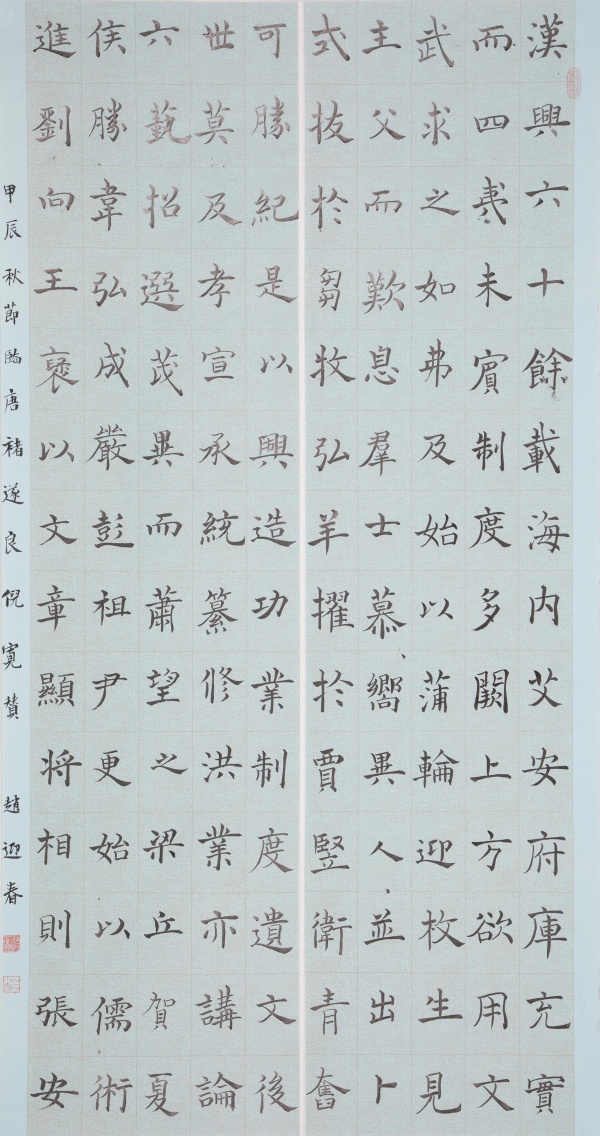 漢興六十餘載海內艾安府庫充實
而四夷未賓制度多闕上方欲用文
武求之如弗及始以蒲輪迎枚生見
主父而歎息羣士慕嚮異人並出卜
式拔於芻牧弘羊擢於賈豎衛青奮
可勝紀是以興造功業制度遺文後
世莫及孝宣承統纂修洪業亦講論
六藝招選茂異而蕭望之梁丘賀夏
侯勝韋弘成嚴彭祖尹更始以儒術
進劉向王褒以文章顯將相則張安
甲辰秋節臨唐褚遂良倪寬贊 趙迎春